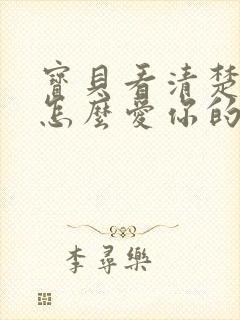 寶貝看清楚
怎麼愛你的
李尋樂